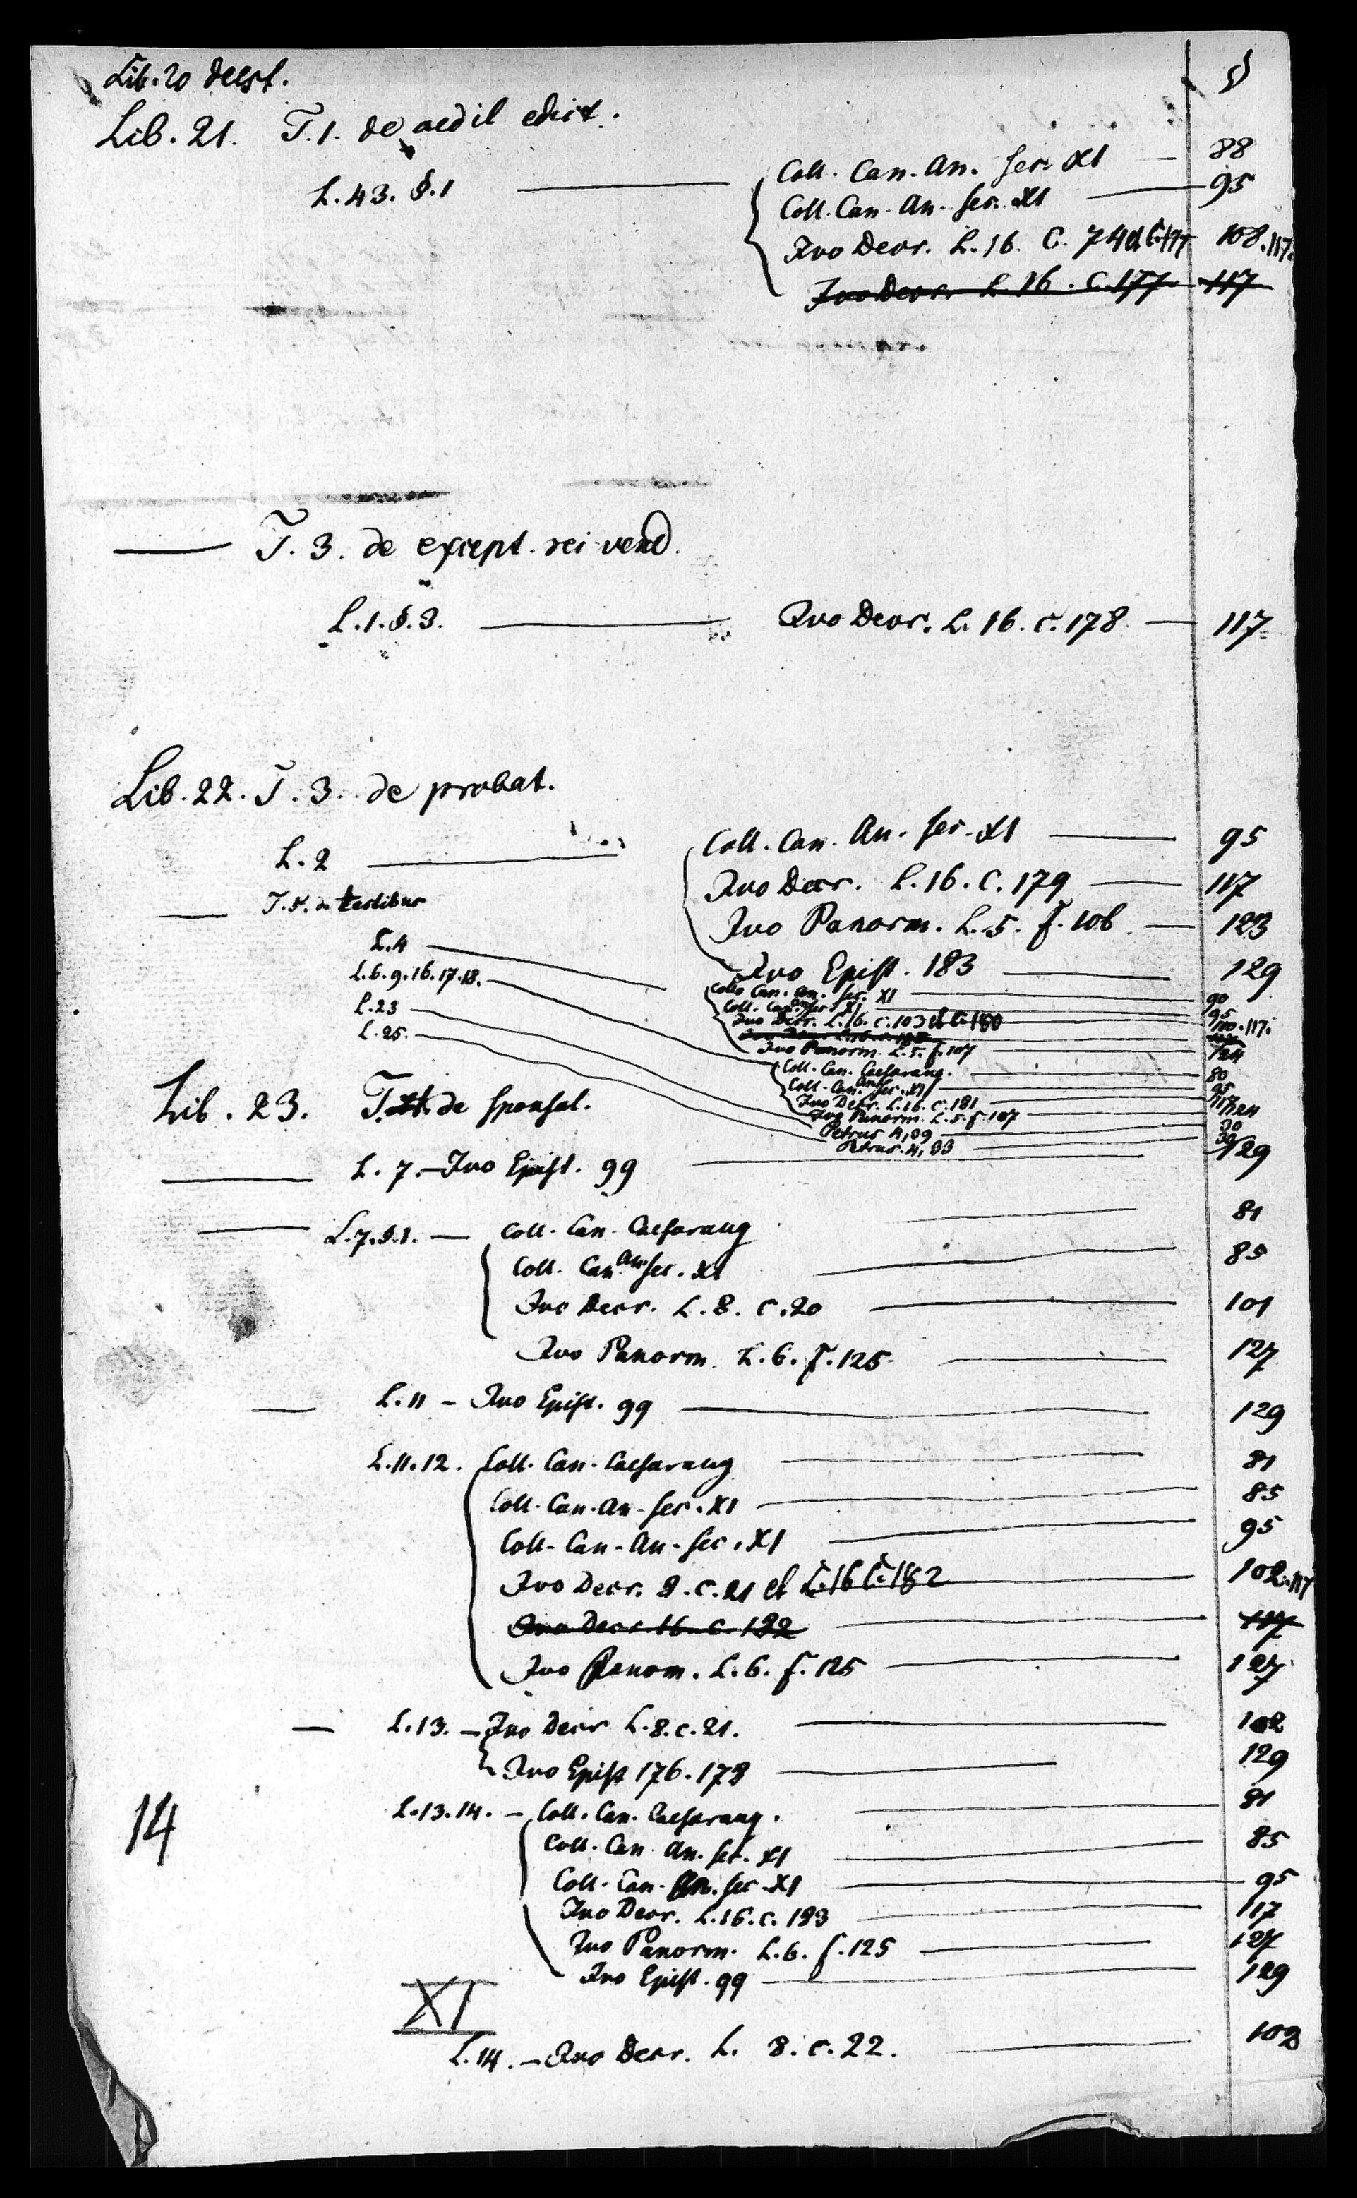 Lib. 20 deest. 5)
Lib. 21. T. 1. de aedil edict.
L. 43. §. 1 Coll. Can. An. sec. XI 88
Coll. Can. An. sec. XI 95
Ivo Decr. L. 16. C. 74 et C. 177 108. 117.
Ivo Decr. L. 16. C. 177 117
T. 3. de except. rei vend.
L. 1. §. 3. Ivo Decr. L. 16. c. 178 117
Lib. 22. T. 3. de probat.
L. 2 Coll. Can. An. sec. XI 95
Ivo Decr. L. 16. C. 179 117
T. 5. de testibus
Ivo Panorm. L. 5. f. 106 123
L. 4
Ivo Epist. 183 129
L. 6. 9. 16. 17. 18.
Coll. Can. An. sec. XI 90
Coll. Can. An. sec. XI 95
L. 23
Ivo Decr. L. 16. c. 103 et C. 180 110. 117.
L. 25.
Ivo Panorm. L. 5. f. 107 124
Coll. Can. Caesaraug. 80
Coll. Can. An. sec. XI 95
Ivo Decr. L. 16. c. 181 117
Ivo Panorm. L. 5. f. 107 124
Petrus 4, 39 30
Petrus. 4, 39 30
Lib. 23. T. 1. de sponsal.
L. 7. – Ivo Epist. 99 129
L. 7. §. 1. – Coll. Can. Caesaraug 81
Coll. Can. An. sec. XI 85
Ivo Decr. L. 8. c. 20 101
Ivo Panorm. L. 6. f. 125 127
L. 11 – Ivo Epist. 99 129
L. 11. 12. Coll. Can. Caesaraug 81
Coll. Can. An. sec. XI 85
Coll. Can. An. sec. XI 95
Ivo Decr. 8. c. 21 et L. 16 C. 182 102. 117
Ivo Decr. 16. c. 182 117
Ivo Panorm. L. 6. f. 125 127
L. 13. – Ivo Decr L. 8. c. 21. 102
Ivo Epist 176. 178 129
L. 13. 14. – Coll. Can. Caesaraug. 81
14
Coll. Can. An. sec. XI 85
Coll. Can. An. sec. XI 95
Ivo Decr. L. 16. c. 183 117
Ivo Panorm. L. 6. f. 125 127
Ivo Epist. 99 129
XI
L. 14. – Ivo Decr. L. 8. c. 22. 102